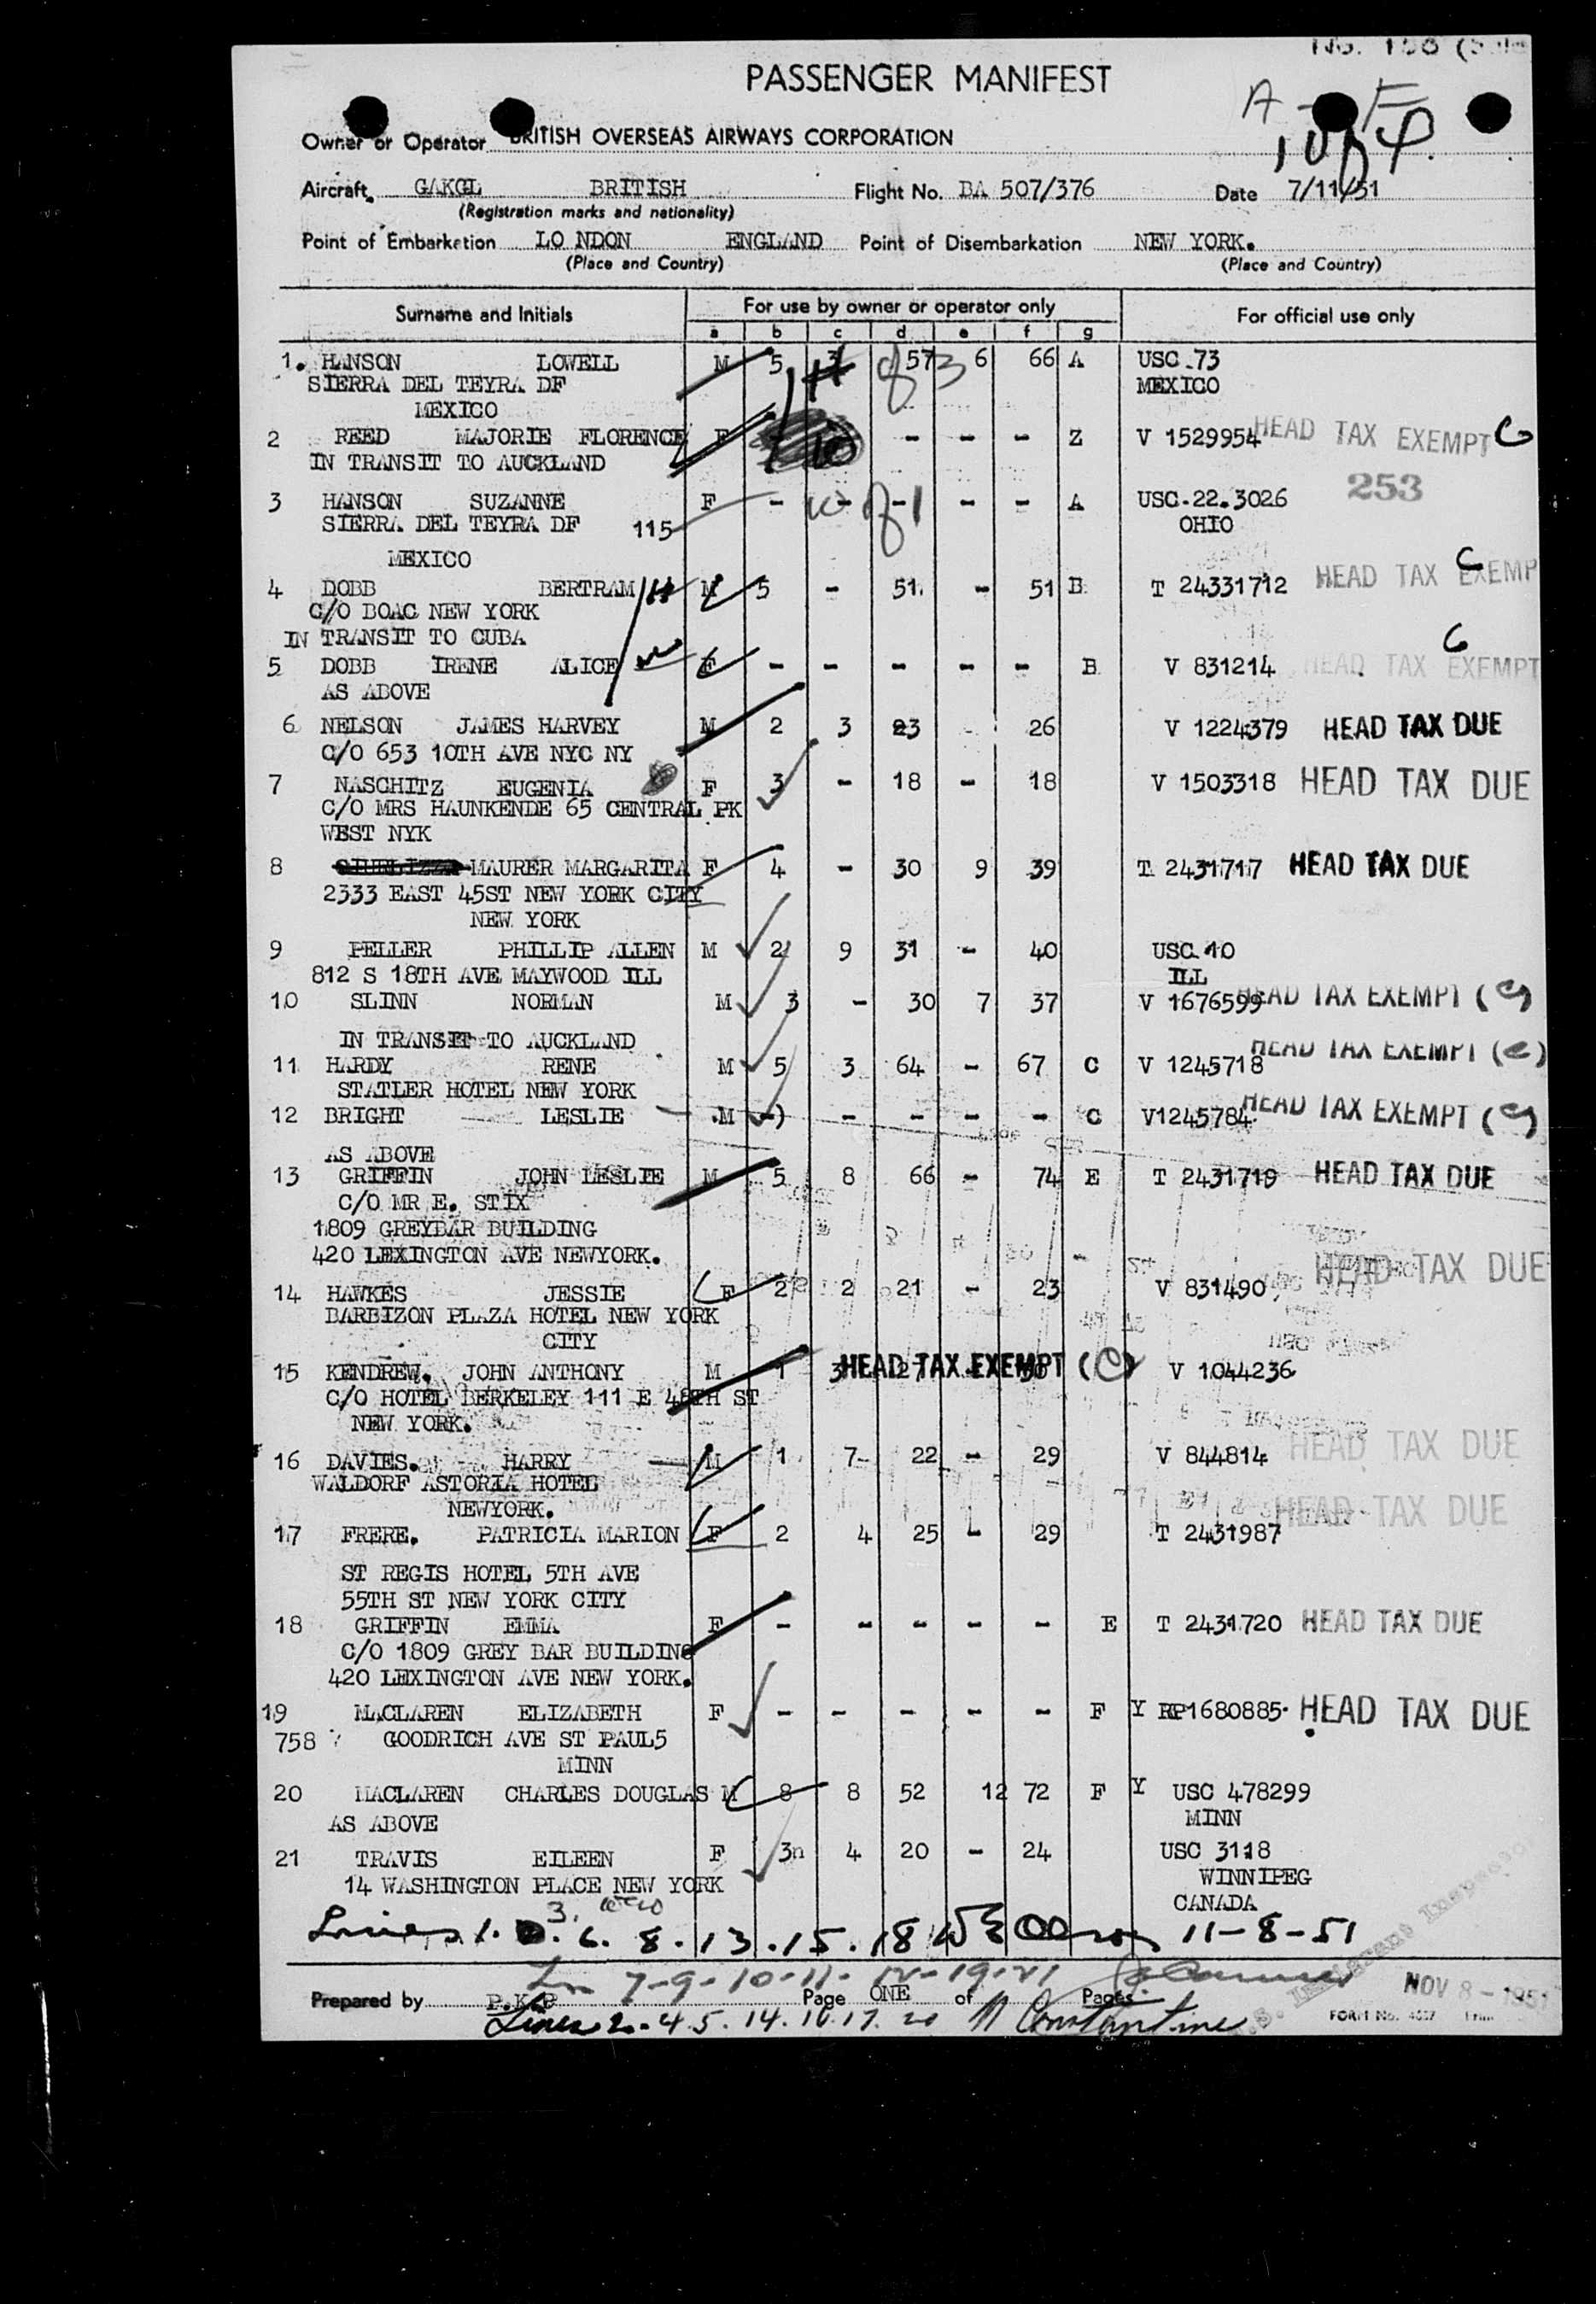 PASSENGER MANIFEST
Owner or Operator BRITISH OVERSEAS AIRWAYS CORPORATION
Aircraft GAKGL BRITISH Flight No. BA 507/376 Date 7/11/51
(Registration marks and nationality)
Point of Embarkation LO NDON ENGLAND Point of Disembarkation NEW YORK.
(Place and Country) (Place and Country)
Surname and Initials For use by owner or operator only For official use only
a b c d e f g
1. HANSON LOWELL M 5 3 57 6 66 A USC 73
SIERRA DEL TEYRA DF MEXICO
MEXICO
2 REED MAJORIE FLORENCE F 10 - - - Z V 1529954 HEAD TAX EXEMPT C
IN TRANSIT TO AUCKLAND
253
3 HANSON SUZANNE F - - - - - A USC-22.3026
SIERRA DEL TEYRA DF 115 OHIO
MEXICO
4 DOBB BERTRAM M 5 - 51. - 51 B T 24331712 HEAD TAX EXEMP C
C/O BOAC NEW YORK
IN TRANSIT TO CUBA
5 DOBB IRENE ALICE F - - - - - B V 831214 HEAD TAX EXEMPT C
AS ABOVE
6 NELSON JAMES HARVEY M 2 3 23 26 V 1224379 HEAD TAX DUE
C/O 653 10TH AVE NYC NY
7 NASCHITZ EUGENIA F 3 - 18 - 18 V 1503318 HEAD TAX DUE
C/O MRS HAUNKENDE 65 CENTRAL PK
WEST NYK
8 MAURER MARGARITA F 4 - 30 9 39 T 2431717 HEAD TAX DUE
2333 EAST 45ST NEW YORK CITY
NEW YORK
9 PELLER PHILLIP ALLEN M 2 9 31 - 40 USC 10
812 S 18TH AVE MAYWOOD ILL ILL
10 SLINN NORMAN M 3 - 30 7 37 V 1676599 HEAD TAX EXEMPT (C)
IN TRANSIT TO AUCKLAND
11 HARDY RENE M 5 3 64 - 67 C V 1245718 HEAD TAX EXEMPT (C)
STATLER HOTEL NEW YORK
12 BRIGHT LESLIE M -) - - - - C V1245784 HEAD TAX EXEMPT (C)
AS ABOVE
13 GRIFFIN JOHN LESLIE M 5 8 66 - 74 E T 2431719 HEAD TAX DUE
C/O MR E. STIX
1809 GREYBAR BUILDING
420 LEXINGTON AVE NEWYORK.
HEAD TAX DUE
14 HAWKES JESSIE F 2 2 21 - 23 V 831490
BARBIZON PLAZA HOTEL NEW YORK
CITY
15 KENDREW. JOHN ANTHONY M 1 3 27 HEAD TAX EXEMPT (C) V 1044236
C/O HOTEL BERKELEY 111 E 48TH ST
NEW YORK.
16 DAVIES. HARRY M 1 7 22 - 29 V 844814 HEAD TAX DUE
WALDORF ASTORIA HOTEL
NEWYORK. HEAD TAX DUE
17 FRERE. PATRICIA MARION F 2 4 25 - 29 T 2431987
ST REGIS HOTEL 5TH AVE
55TH ST NEW YORK CITY
18 GRIFFIN EMMA F - - - - - E T 2431720 HEAD TAX DUE
C/O 1809 GREY BAR BUILDING
420 LEXINGTON AVE NEW YORK.
19 MACLAREN ELIZABETH F - - - - - F Y RP1680885. HEAD TAX DUE
758 GOODRICH AVE ST PAUL5
MINN
20 MACLAREN CHARLES DOUGLAS M 8 8 52 12 72 F Y USC 478299
AS ABOVE MINN
21 TRAVIS EILEEN F 3n 4 20 - 24 USC 3118
14 WASHINGTON PLACE NEW YORK WINNIPEG
CANADA
Lines 1. 3. 6. 8. 13. 15. 18 11-8-51
Ln 7-9-10-11-12-19-21
Prepared by P.K.P Page ONE of Pages NOV 8 - 1951
Lines 2. 4. 5. 14. 16. 17. 20 Constantine